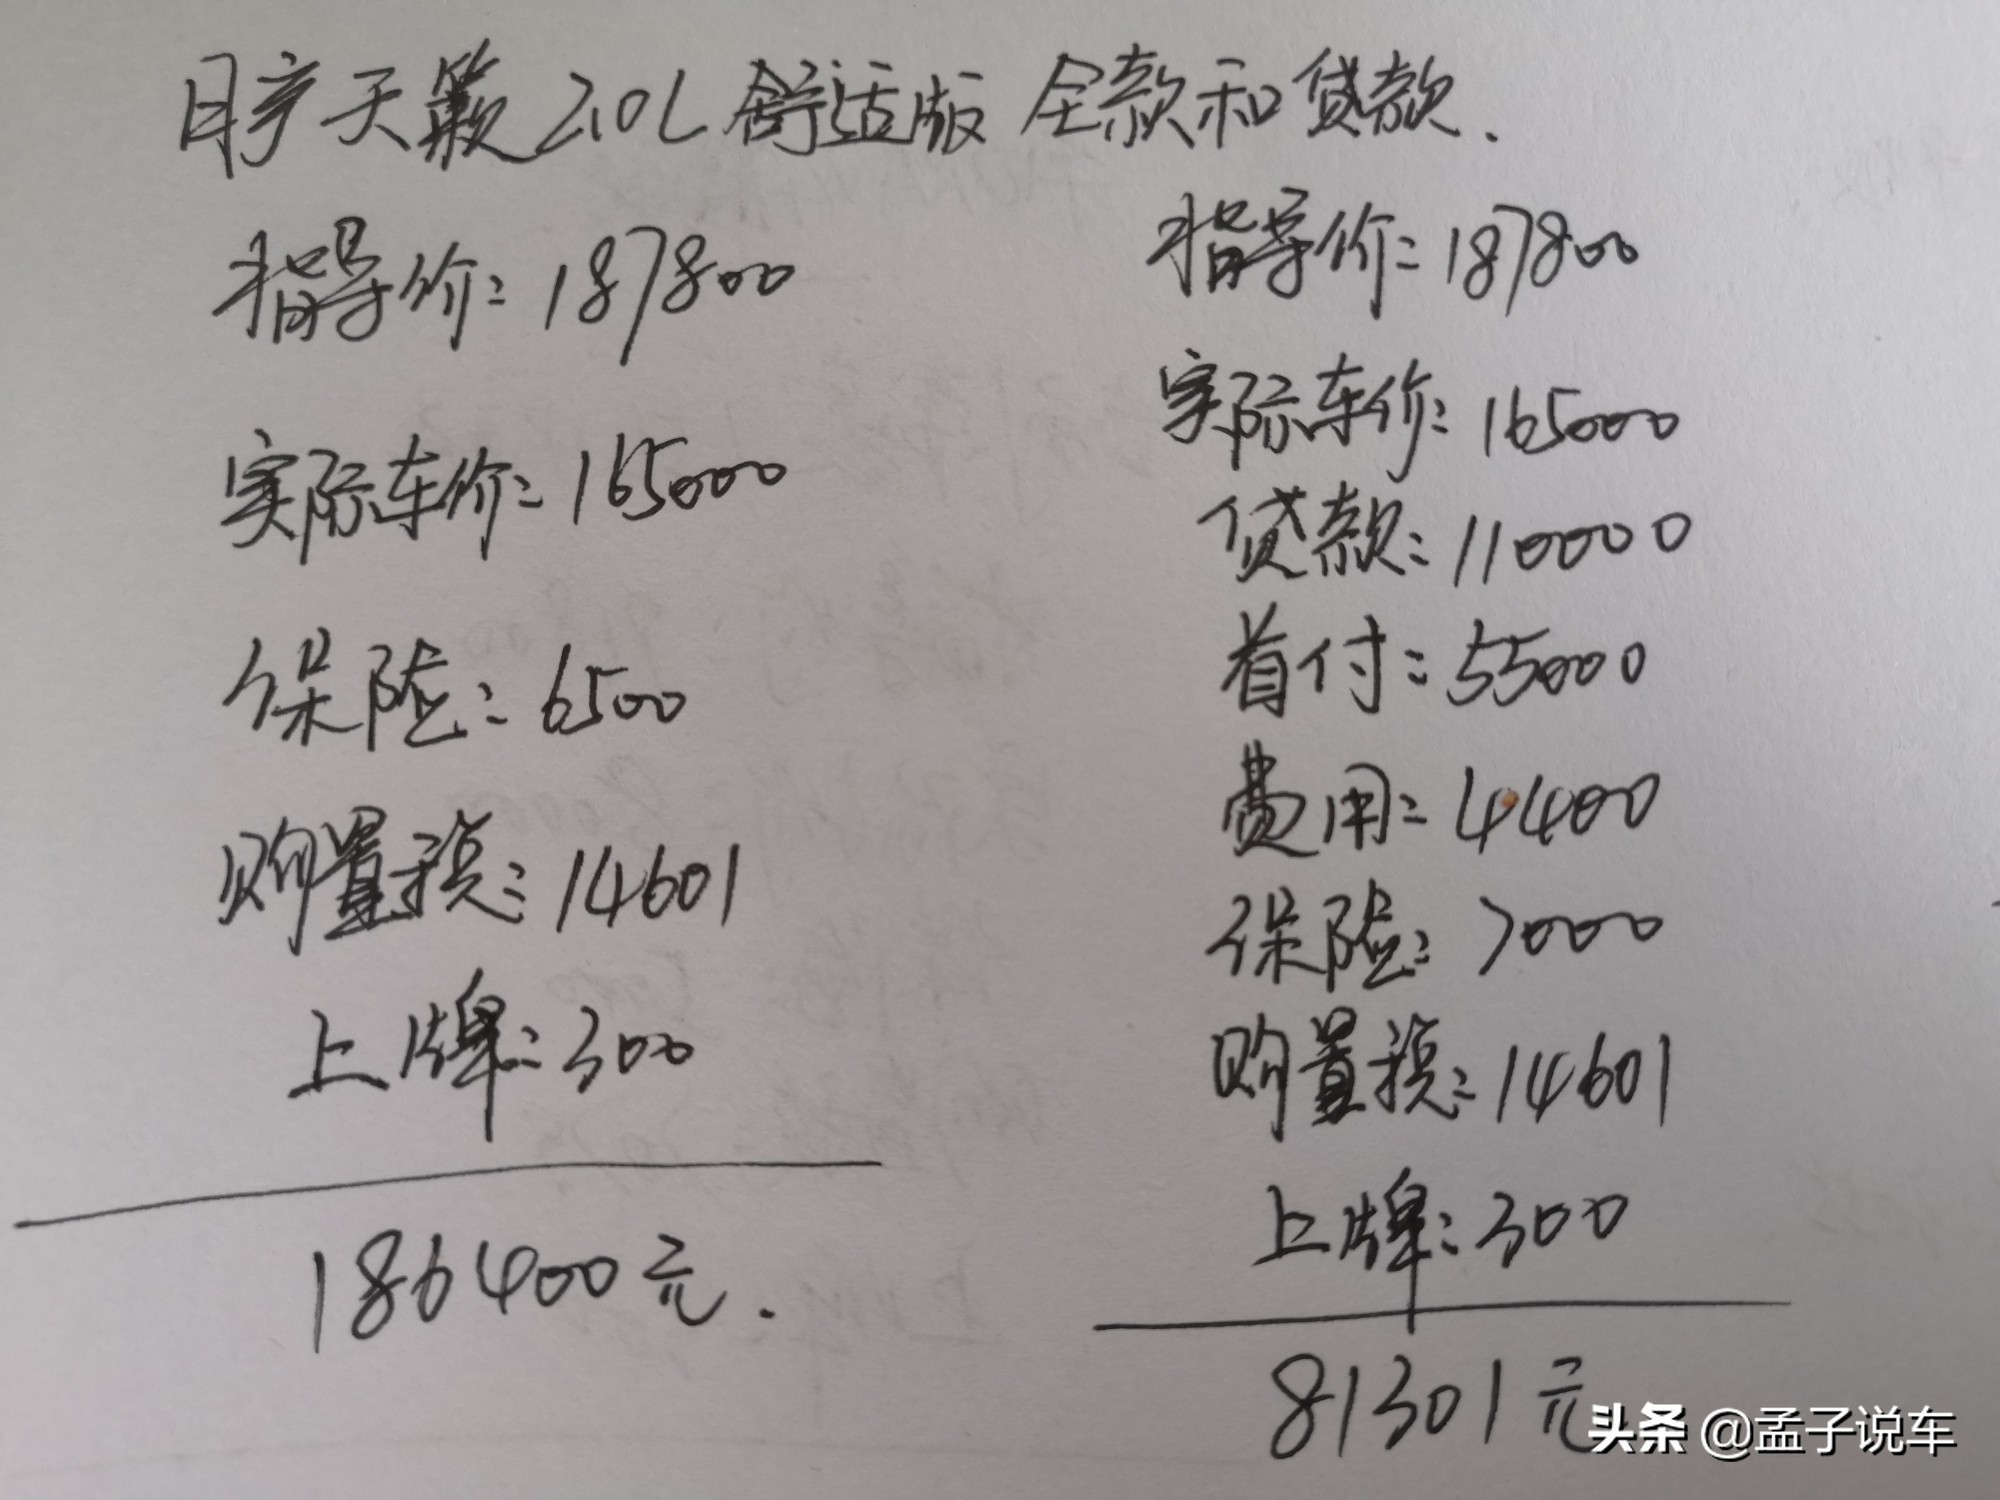 日产天籁2.0L舒适版 全款和贷款.
指导价:187800
实际车价:165000
保险:6500
购置税:14601
上牌:300
186400元.
指导价:187800
实际车价:165000
贷款:110000
首付:55000
费用:4400
保险:7000
购置税:14601
上牌:300
81301元
头条 @孟子说车